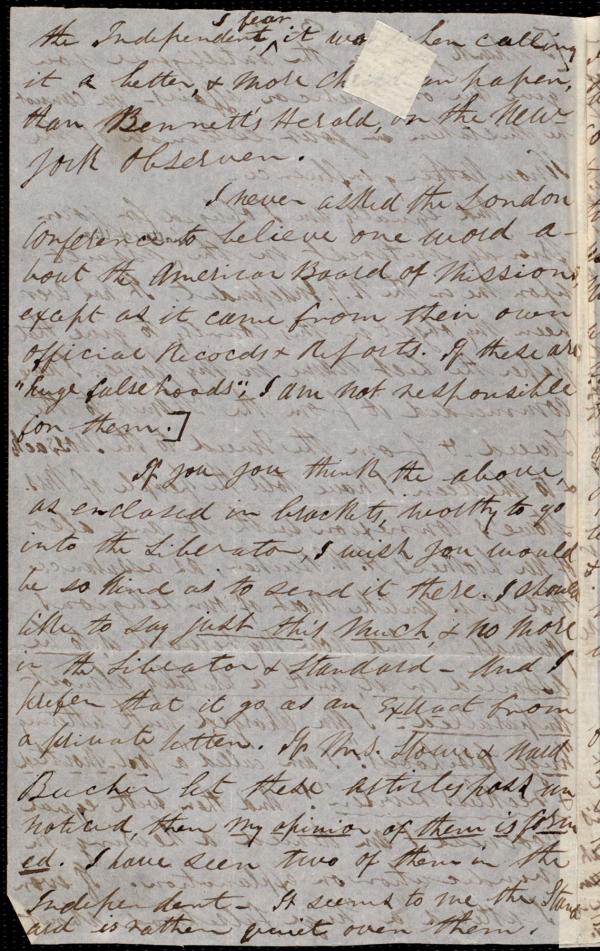 the Independent, ^ I fear it was when calling
it a better, & more Ch an paper,
than Bennett's Herald, or the New-
York Observer.
I never asked the London
Conference to believe one word a-
bout the American Board of Missions
except as it came from their own
official Records & Reports. If these are
"huge falsehoods", I am not responsible
for them.]
If you you think the above,
as enclosed in brackets, worthy to go
into the Liberator, I wish you would
be so kind as to send it there. I should
like to say just this much, & no more
in the Liberator & Standard - And I
prefer that it go as an Extract from
a private letter. If Mrs. Stowe & Ward
Beecher let these articles pass un
noticed, then my opinion of them is form
ed. I have seen two of them in the
Independent - It seems to me the Stand
ard is rather quiet over them.